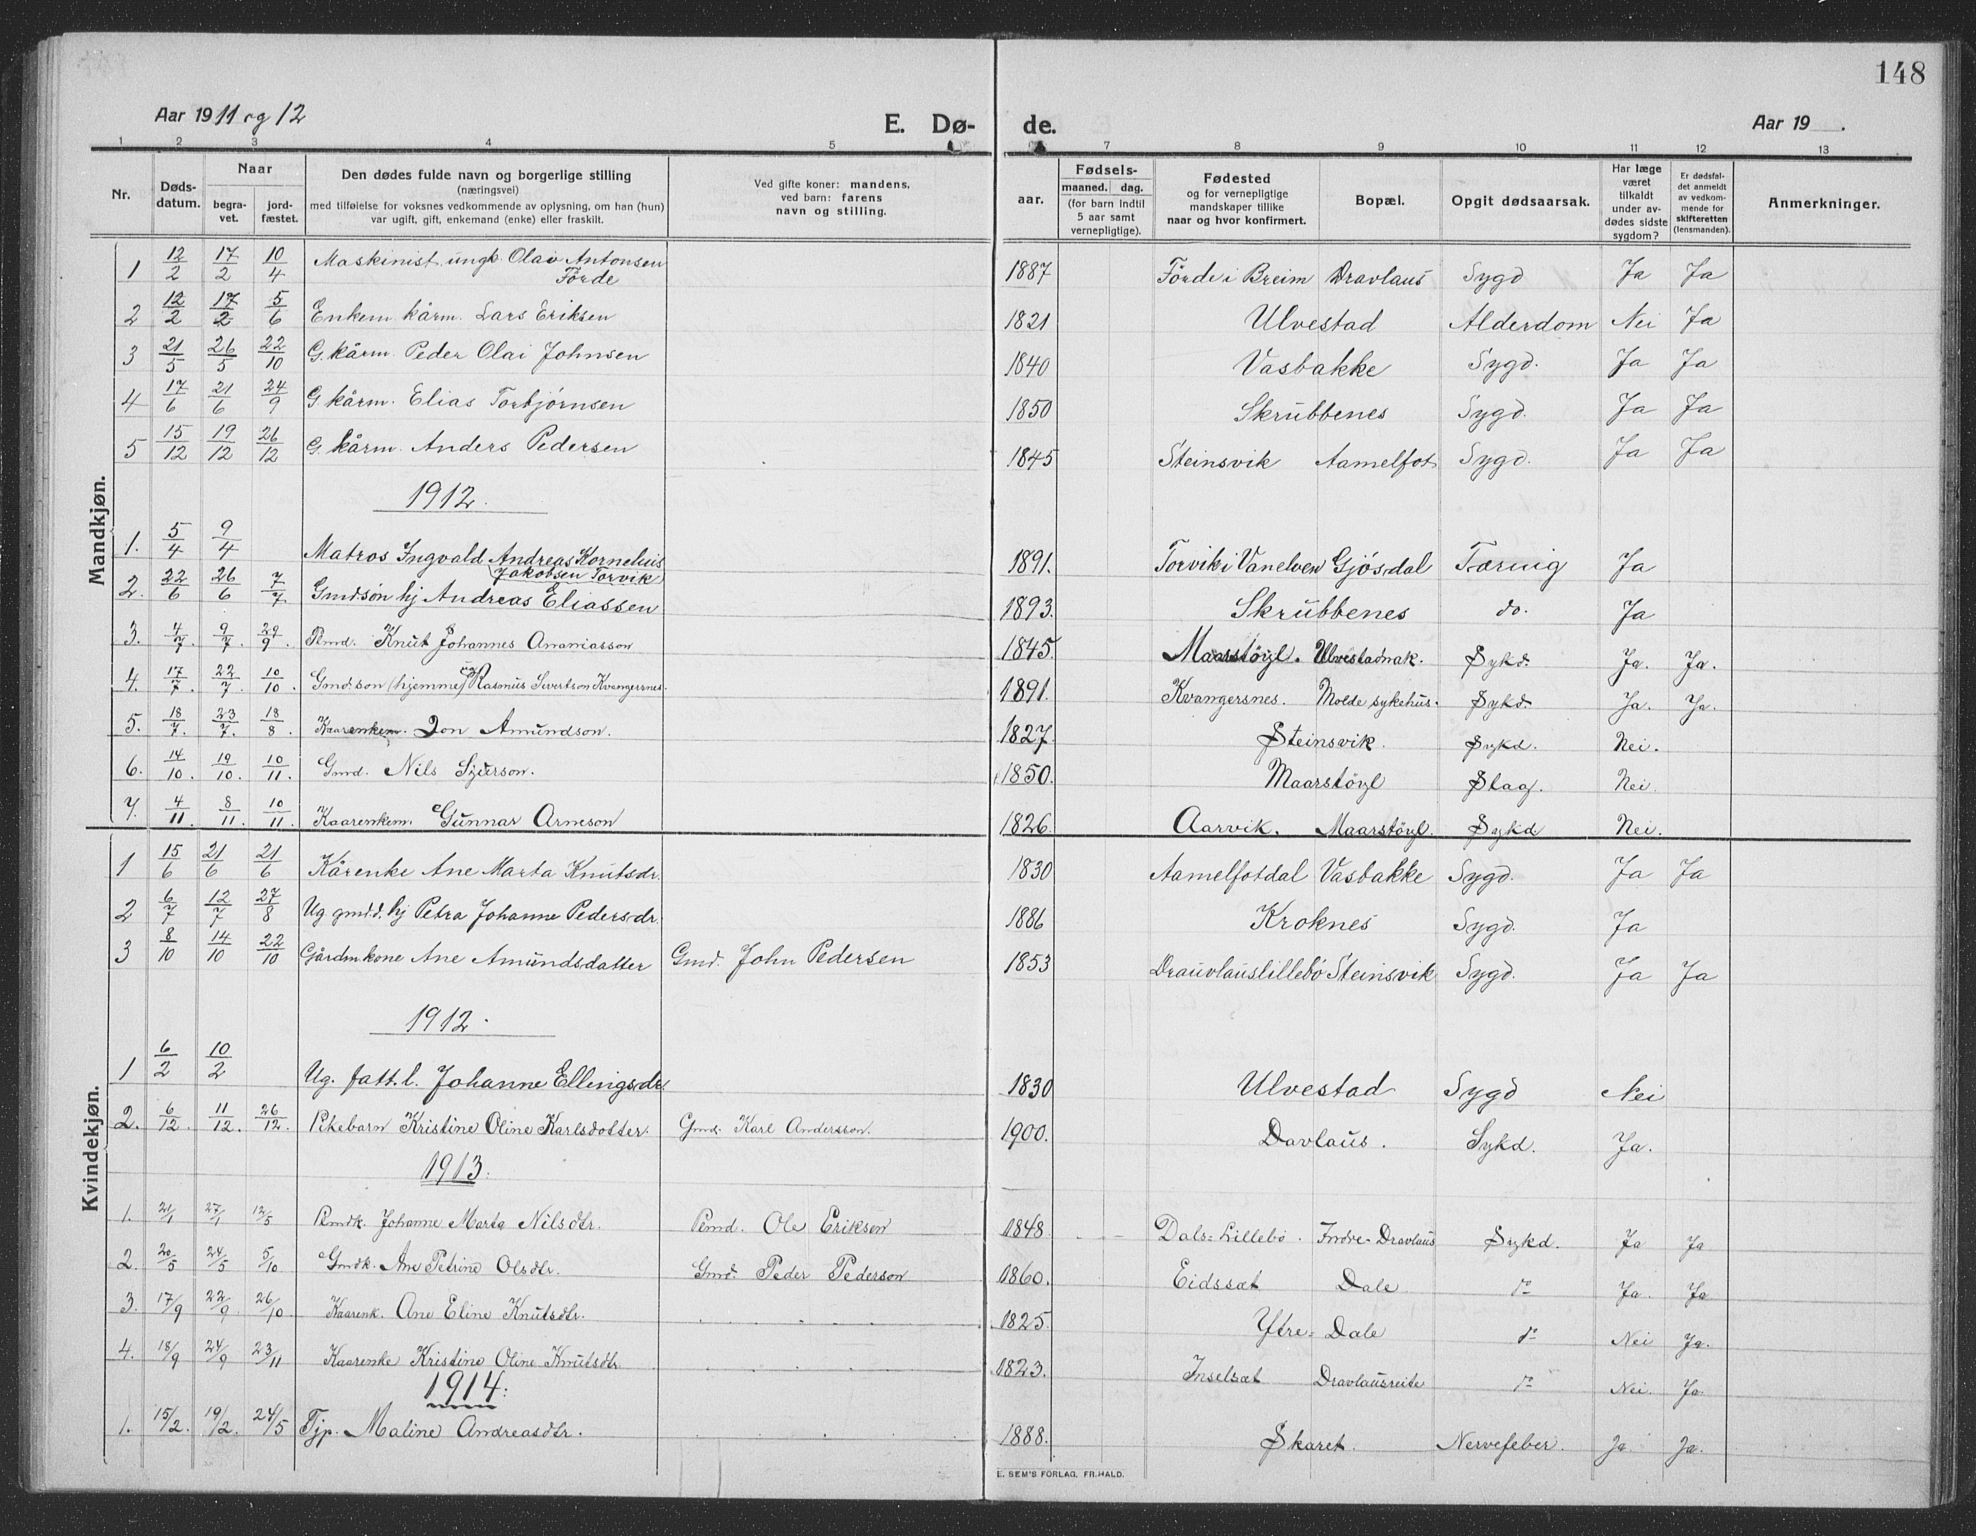 148
Aar 1911 og 12 E. Dø- de. Aar 19 .
1 2 3 4 5 7 8 9 10 11 12 13
Nr. Døds-datum. Naar begra-vet. jord-fæstet. Den dødes fulde navn og borgerlige stilling (næringsvei) med tilføielse for voksnes vedkommende av oplysning, om han (hun) var ugift, gift, enkemand (enke) eller fraskilt. Ved gifte koner: mandens, ved barn: farens navn og stilling. aar. Fødsels- maaned. dag. (for barn indtil 5 aar samt vernepligtige). Fødested og for vernepligtige mandskaper tillike naar og hvor konfirmert. Bopæl. Opgit dødsaarsak. Har læge været tilkaldt under av-dødes sidste sygdom? Er dødsfal-det anmeldt av vedkom-mende for skifteretten (lensmanden). Anmerkninger.
Mandkjøn.
1 12/2 17/2 10/4 Maskinist ungk Olav Antonsen Förde 1887 Förde i Breim Dravlaus Sygd Ja Ja
2 12/2 17/2 5/6 Enkem. kårm. Lars Eriksen 1821 Ulvestad Alderdom Nei Ja
3 21/5 26/5 22/10 G. kårm. Peder Olai Johnsen 1840 Vasbakke Sygd. Ja Ja
4 17/6 21/6 24/9 G. kårm. Elias Torbjørnsen 1850 Skrubbenes Sygd. Ja Ja
5 15/12 19/12 26/12 G. kårm. Anders Pedersen 1845 Steinsvik Aamelfot Sygd. Ja Ja
1912.
1. 5/4 9/4 Matros Ingvald Andreas Kornelius Jakobsen Torvik 1891. Torvik i Vanelven Gjösdal Tæring Ja
2. 22/6 26/6 7/7 Gmdsøn hj Andreas Eliassen 1893. Skrubbenes do. Ja
3. 4/7. 9/7. 29/9. Pmd. Knut Johannes Ananiasson 1845. Maarstöyl. Ulvestadnak. Sykd. Ja. Ja.
4. 17/7. 22/7. 10/10. Gmd.son (hjemme) Rasmus Sivertson Kvangersnes. 1891. Kvangersnes. Molde sykehus. Sykd. Ja. Ja.
5. 18/7. 23/7. 18/8. Kaarenkem. Jon Amundson. 1827. Steinsvik. Sykd. Nei.
6. 14/10. 19/10. 10/11. Gmd. Nils Sjurson. 1850. Maarstöyl Slag. Nei.
7. 4/11. 8/11. 10/11. Kaarenkem. Gunnar Arneson 1826. Aarvik. Maarstöyl. Sykd. Nei.
Kvindekjøn.
1 15/6 21/6 21/6 Kårenke Ane Marta Knutsdr. 1830 Aamelfotdal Vasbakke Sygd. Ja Ja
2 6/7 12/7 27/8 Ug gmd.d. hj Petra Johanne Pedersdr. 1886 Kroknes Sygd. Ja
3 8/10 14/10 22/10 Gårdmkone Ane Amundsdatter Gmd. John Pedersen 1853 Drauvlauslillebö Steinsvik Sygd. Ja Ja
1912.
1 6/2 10/2 Ug. fatt.l. Johanne Ellingsdr 1830 Ulvestad Sygd Nei
2. 6/12. 11/12. 26/12. Pikebarn Kristine Oline Karlsdotter. Gmd. Karl Andersson. 1900. Davlaus. Sykd. Ja.
1913.
1. 21/1 27/1 12/5 Pmdk. Johanne Marta Nilsdtr. Pmd. Ole Erikson 1848. Dals=Lillebø. Indre-Dravlaus Sykd. Ja Ja
2. 20/5 24/5 5/10 Gmdk. Ane Petrine Olsdtr. Gmd. Peder Pederson 1860. Eidssæt Dale. do Ja. Ja
3. 17/9 22/9 26/10 Kaarenk. Ane Eline Knutsdtr. 1825. Ytre=Dale do Nei Ja.
4. 18/9 24/9 23/11 Kaarenke Kristine Oline Knutsdtr. 1823. Inselsæt Dravlausreite do Nei. Ja.
1914:
1. 15/2. 19/2. 24/5 Tjp. Maline Andreasdtr. 1888. Skaret. Nervefeber. Ja Ja.
E. SEM'S FORLAG, FR.HALD.